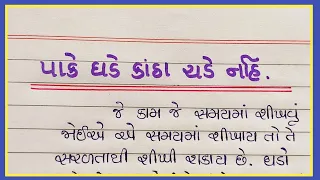 પાકે ઘડે કાંઠા ચડે નહિ.
જે કામ જે સમયમાં શીખવું
જોઈએ એ સમયમાં શીખાય તો તે
સરળતાથી શીખી શકાય છે. ઘડો